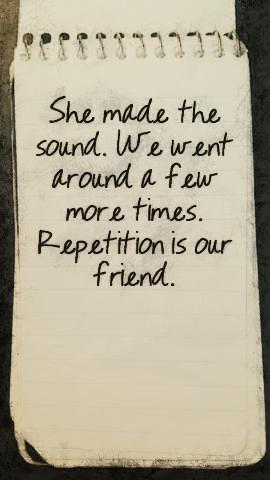 She made the
sound. We went
around a few
more times.
Repetition is our
friend.